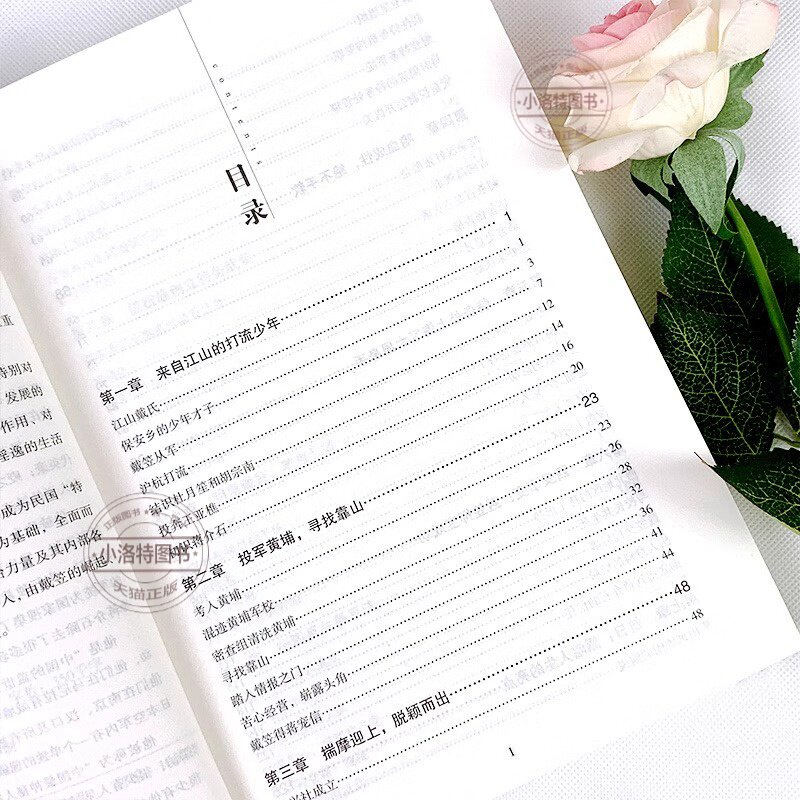 重
特别对
发展的
作用、对
逸的生活
成为民国“特
为基础，全面而
力量及其内部各
人，由戴笠的崛起
contents
目录
第一章 来自江山的打流少年 1
江山戴氏 1
保安乡的少年才子 3
戴笠从军 7
沪杭打流 12
结识杜月笙和胡宗南 14
投奔王亚樵 16
初识蒋介石 20
第二章 投军黄埔，寻找靠山 23
考入黄埔 23
混迹黄埔军校 26
密查组清洗黄埔 28
寻找靠山 32
踏入情报之门 36
苦心经营，崭露头角 41
戴笠得蒋宠信 44
第三章 揣摩迎上，脱颖而出 48
社成立 48
1
正版图书
小洛特图书
天猫正版
小洛特图书
天猫正版